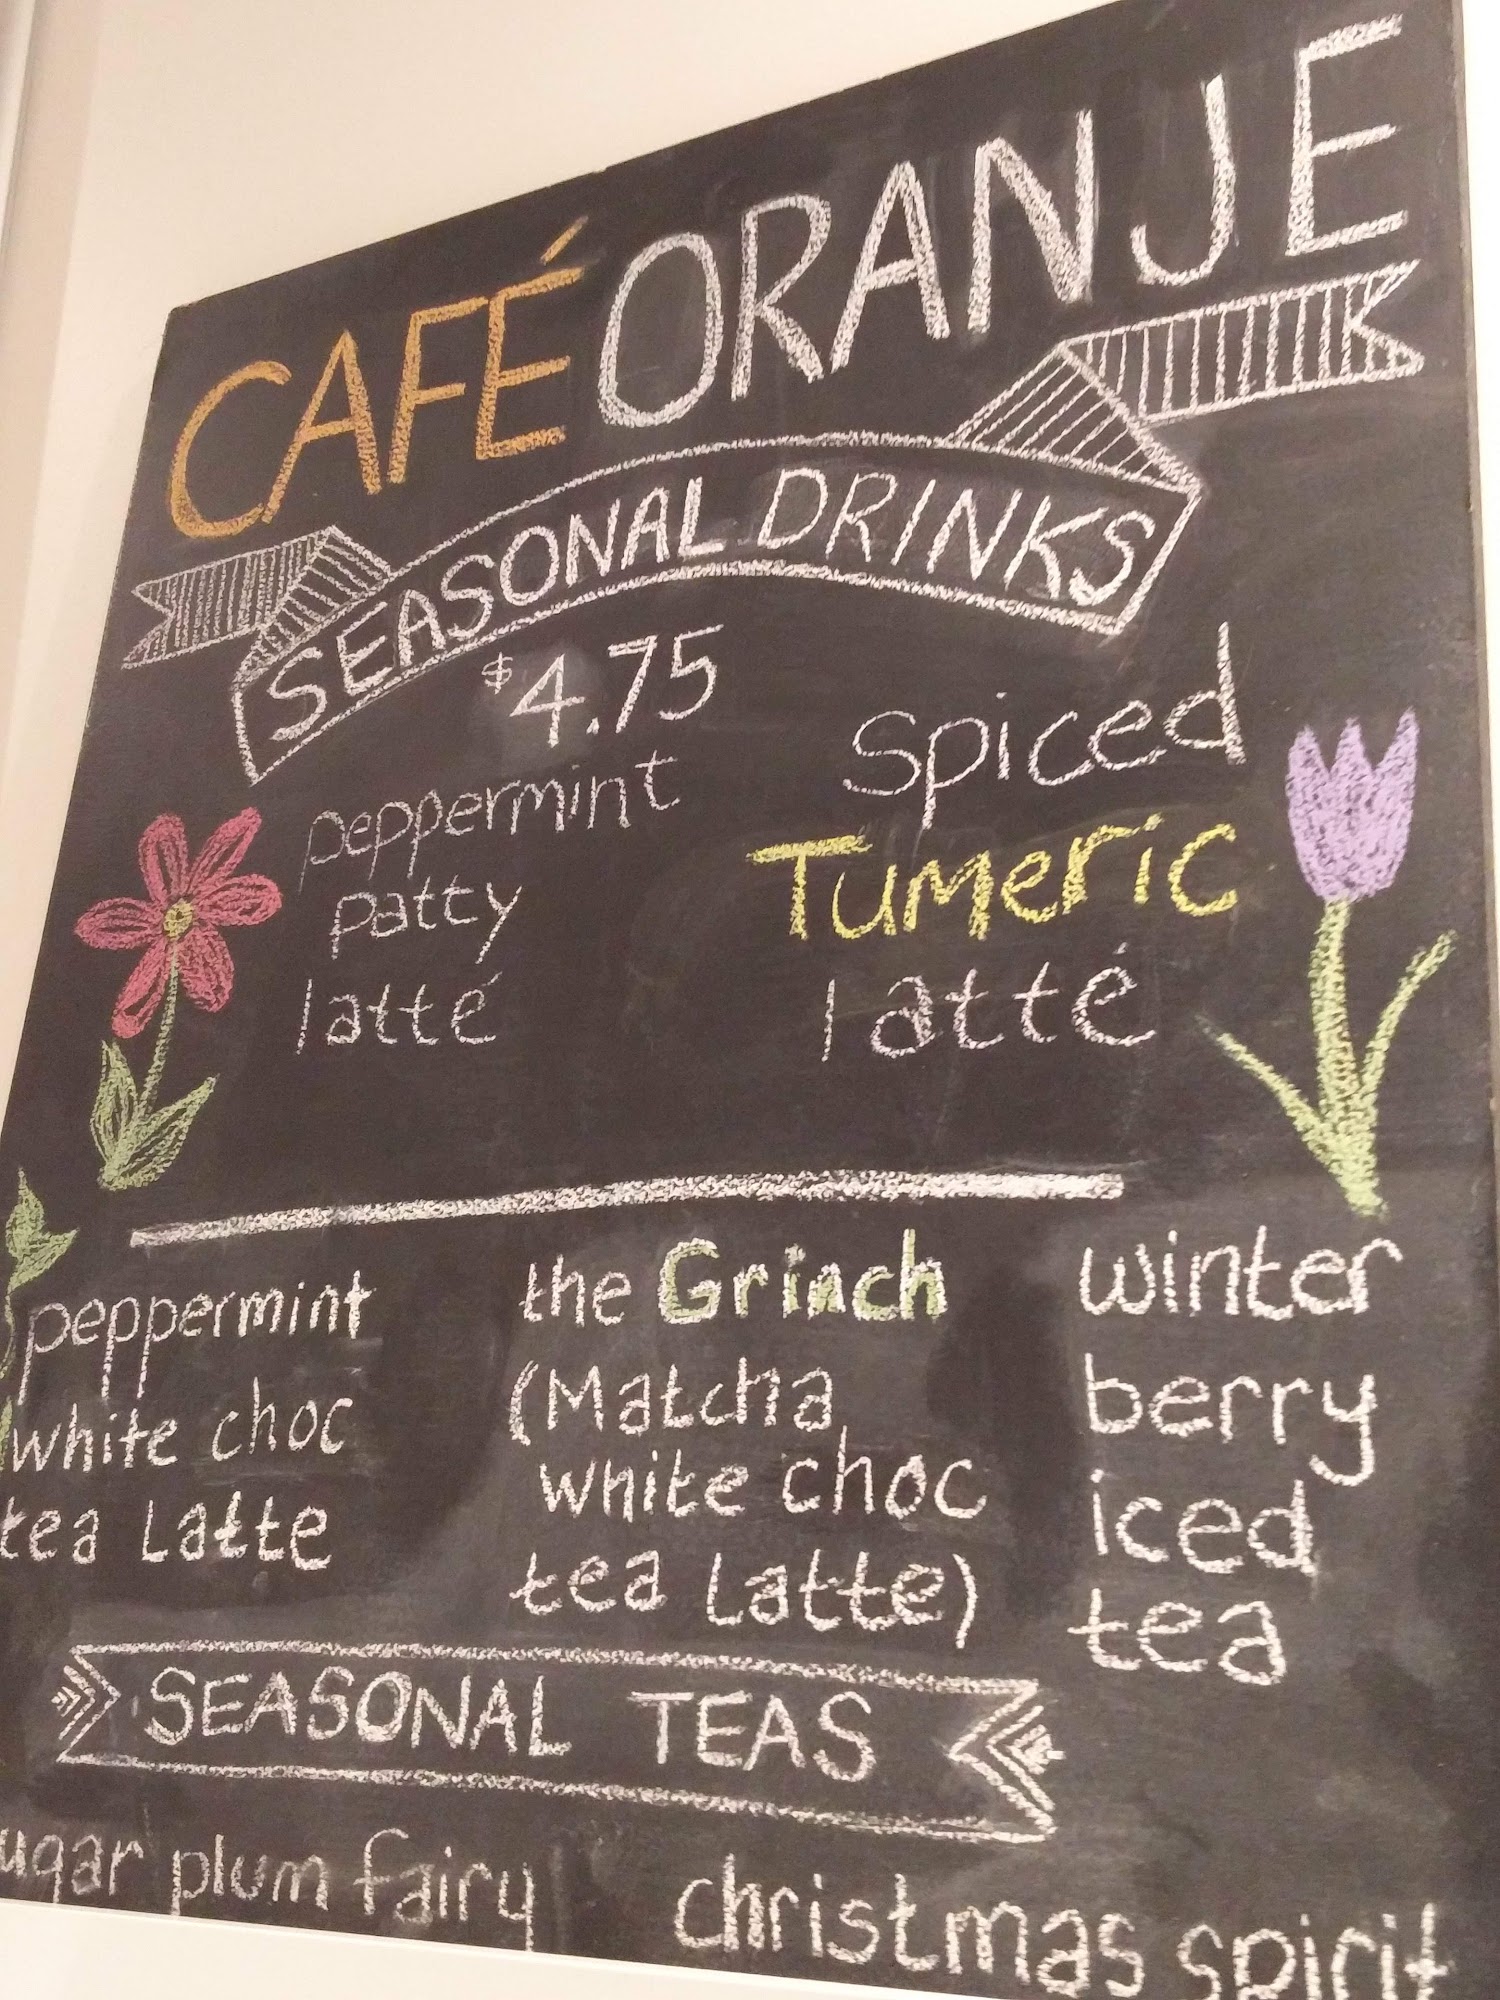 CAFÉ ORANJE
SEASONAL DRINKS
$4.75
peppermint
patty
latté
Spiced
Tumeric
latté
peppermint
white choc
tea Latte
the Grinch
(Matcha
white choc
tea Latte)
winter
berry
iced
tea
SEASONAL TEAS
ugar plum fairy
christmas spirit